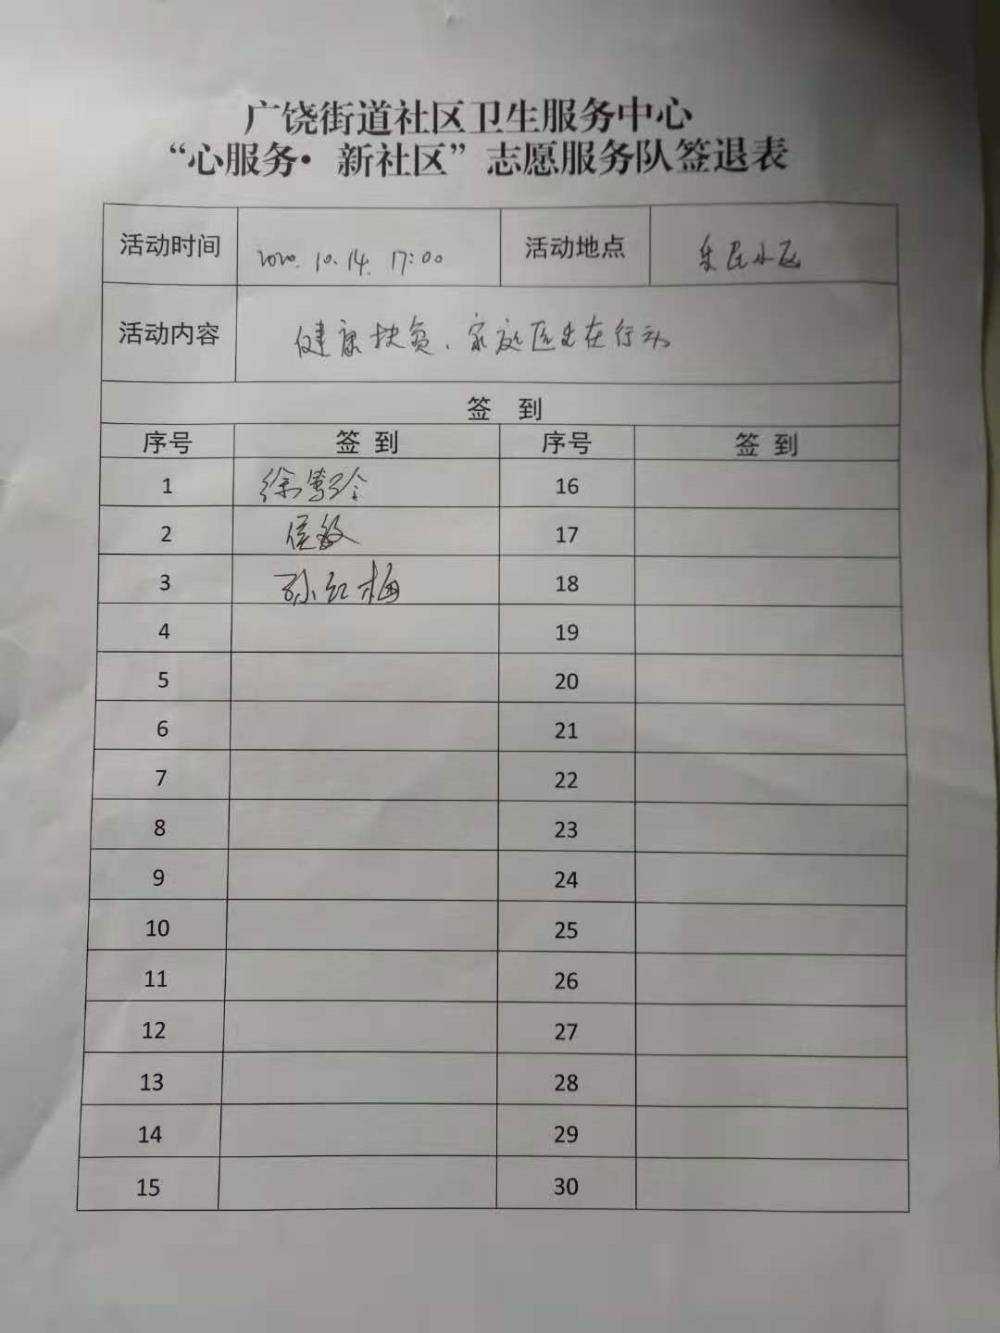 广饶街道社区卫生服务中心
“心服务·新社区”志愿服务队签退表
活动时间 2020.10.14. 17:00 活动地点 乐民小区
活动内容 健康扶贫、家庭医生在行动
签 到
序号 签 到 序号 签 到
1 16
2 侯敏 17
3 孙红梅 18
4 19
5 20
6 21
7 22
8 23
9 24
10 25
11 26
12 27
13 28
14 29
15 30